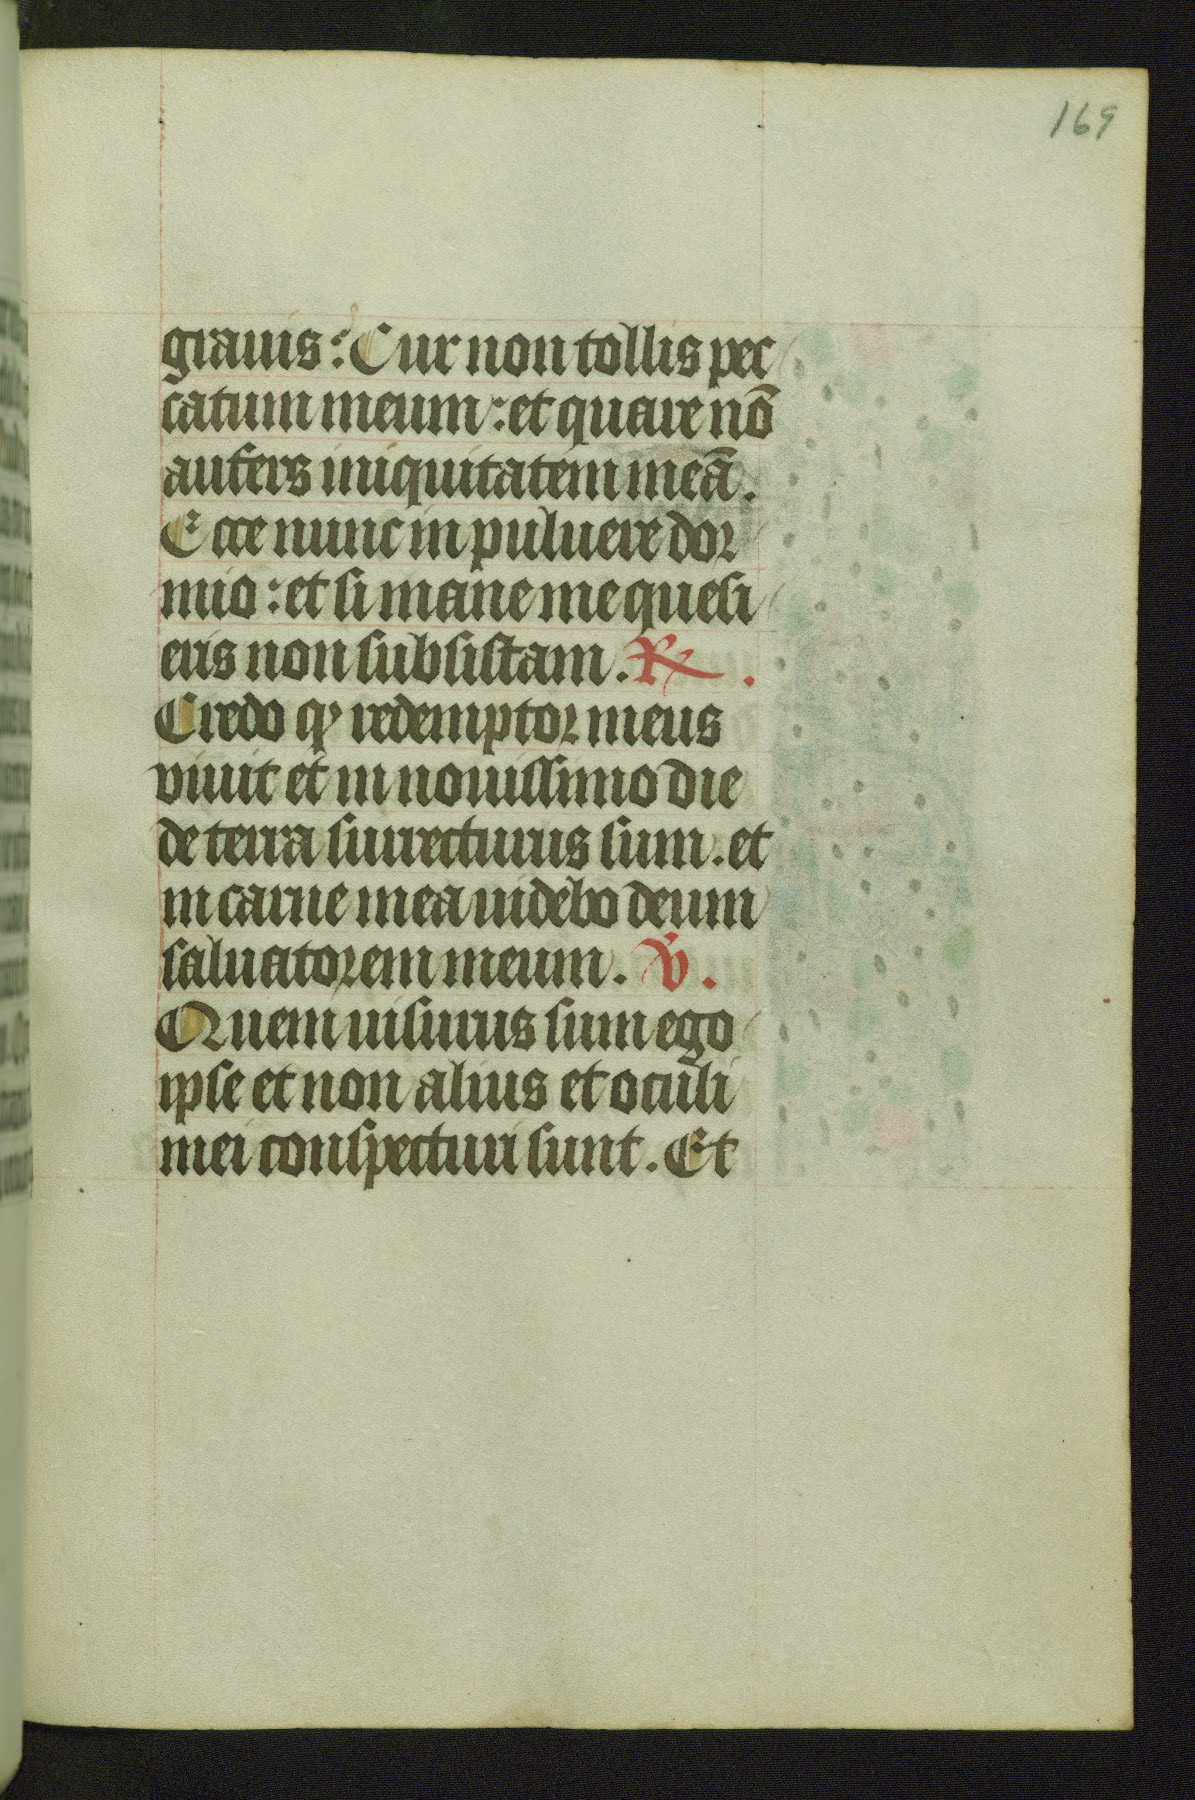 169
grauis : Cur non tollis pec
catum meum : et quare nō
aufers iniquitatem meā .
Ecce nunc in puluere dor
mio : et si mane me quesi
eris non subsistam . ℟ .
Credo qꝫ redemptor meus
viuit et in nouissimo die
de terra surrecturus sum . et
in carne mea uidebo deum
saluatorem meum . ℣ .
Quem uisurus sum ego
ipse et non alius et oculi
mei conspecturi sunt . Et